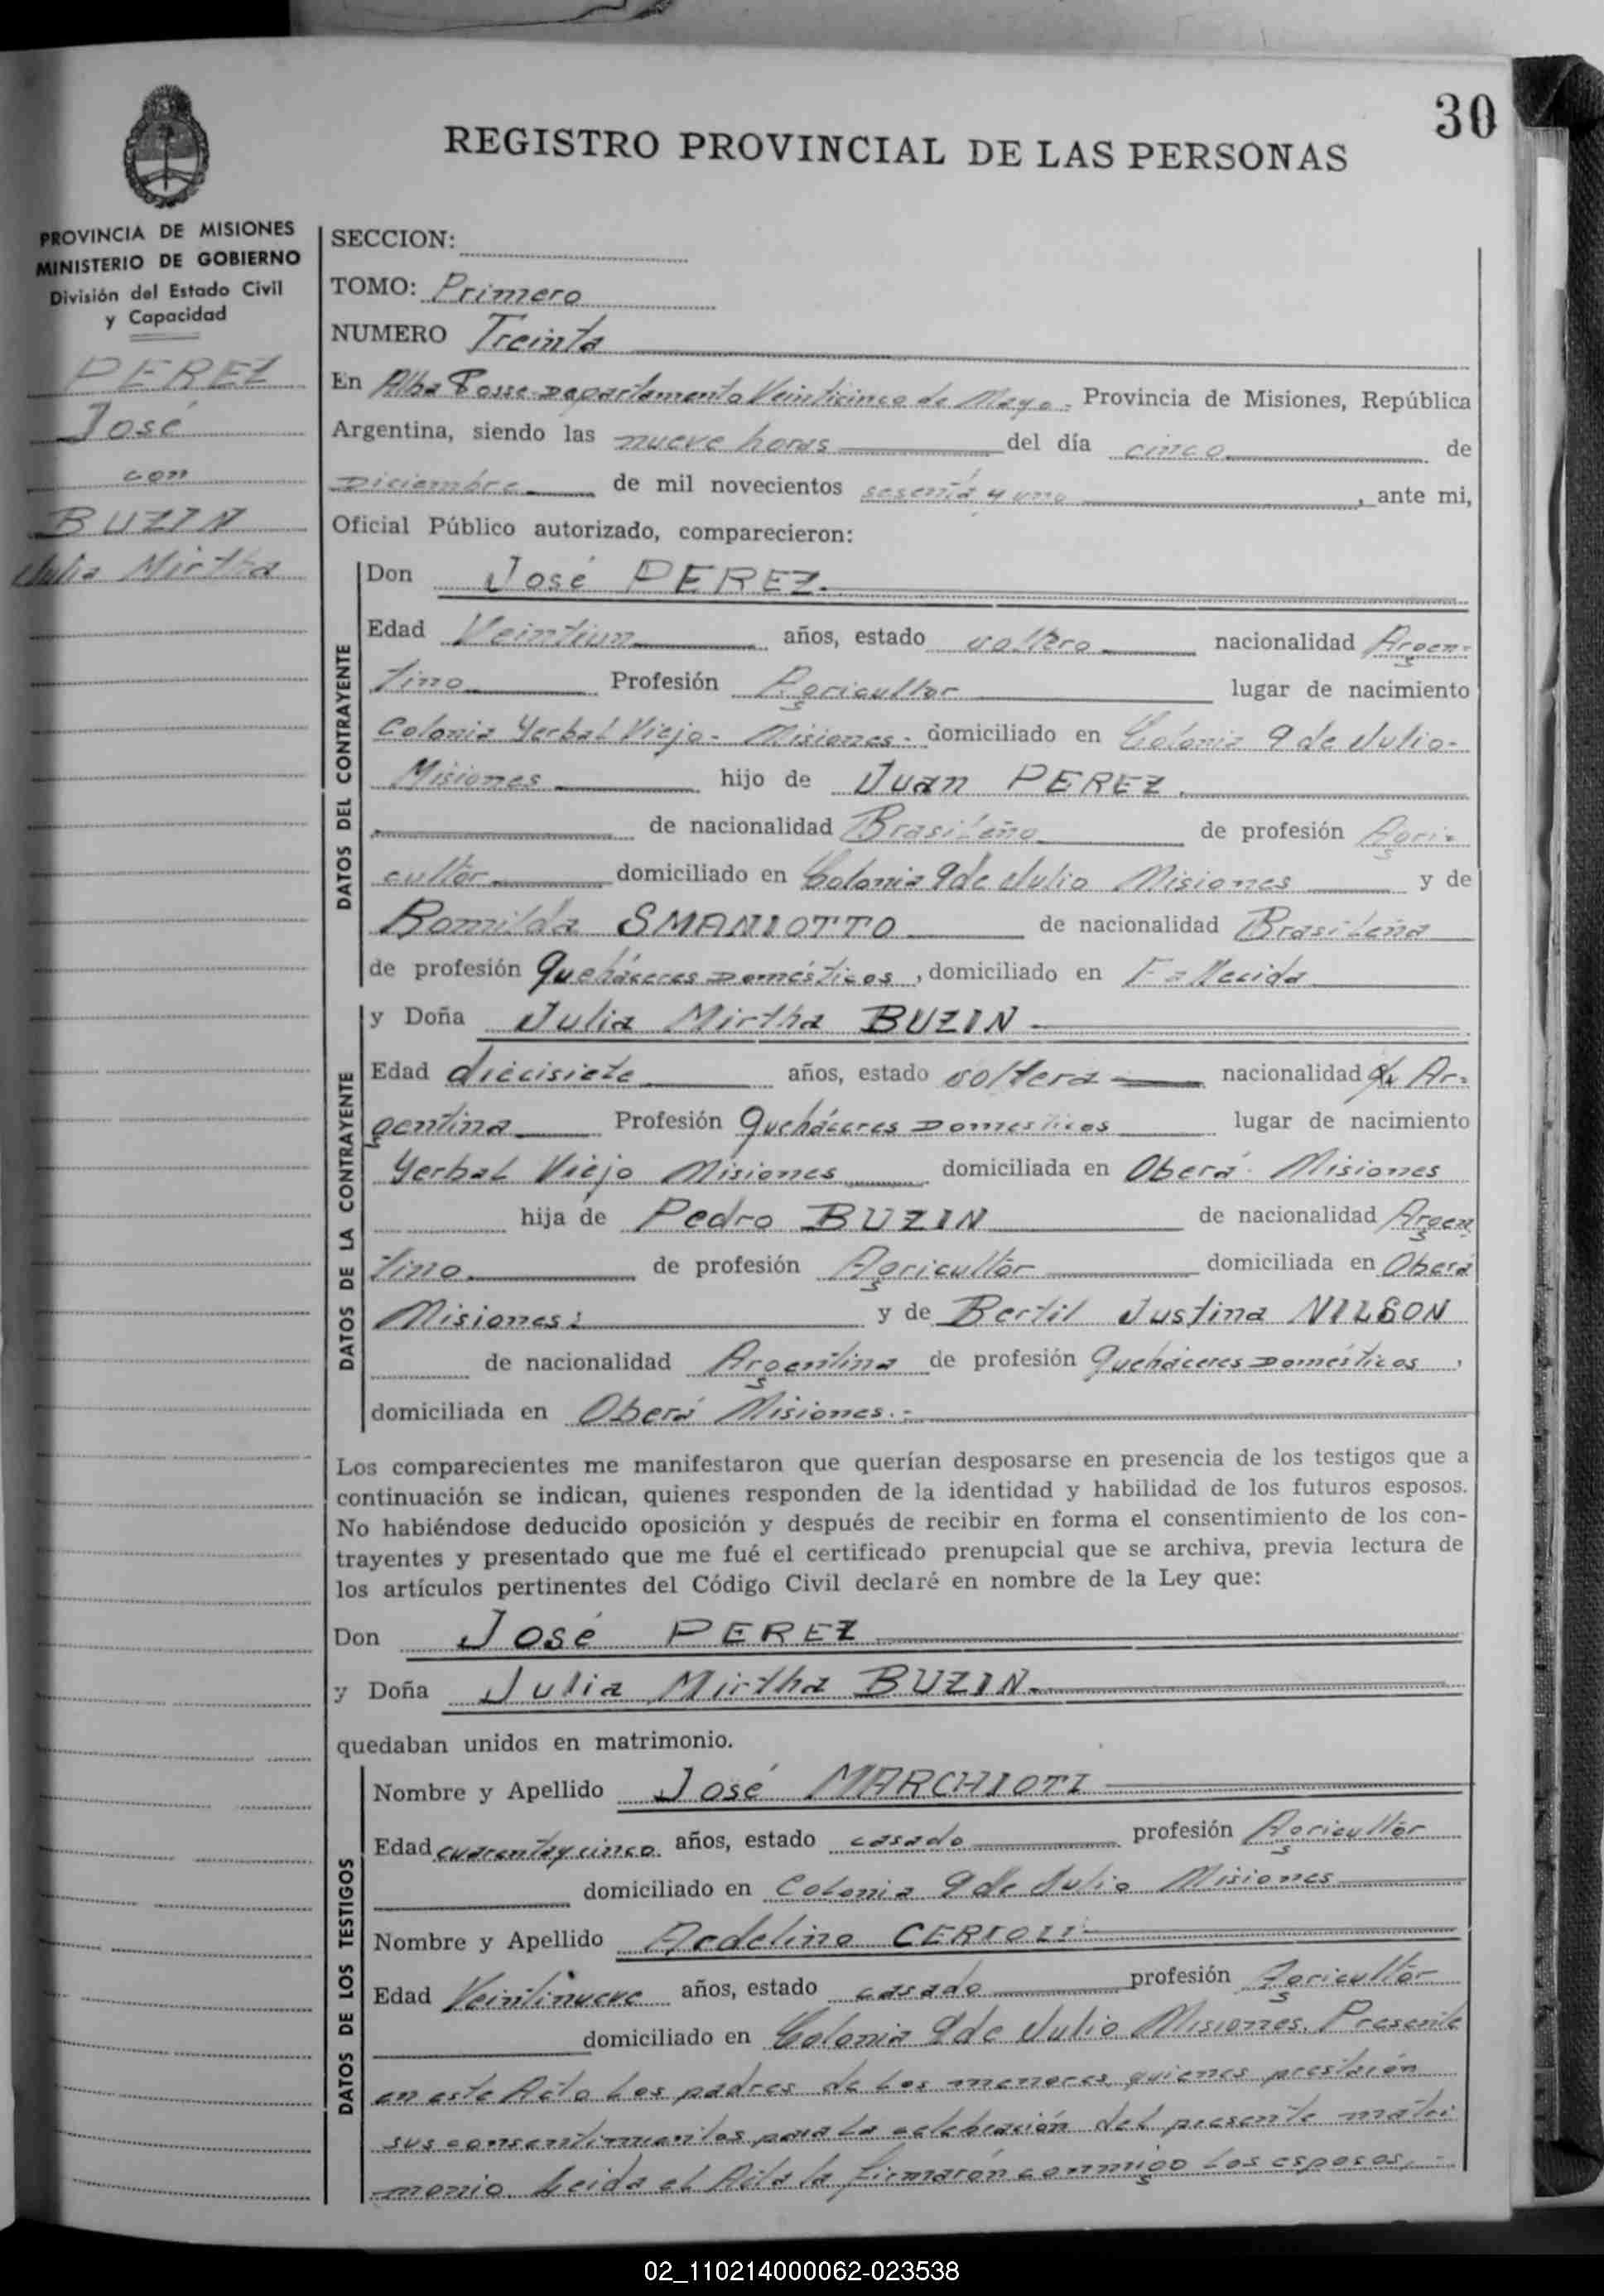 30
REGISTRO PROVINCIAL DE LAS PERSONAS
PROVINCIA DE MISIONES
MINISTERIO DE GOBIERNO
División del Estado Civil
y Capacidad
PEREZ
José
con
BUZIN
Julia Mirtha
SECCION:
TOMO: Primero
NUMERO Treinta
En Alba Posse Departamento Veinticinco de Mayo - Provincia de Misiones, República
Argentina, siendo las nueve horas del día cinco de
Diciembre de mil novecientos sesenta y uno, ante mi,
Oficial Público autorizado, comparecieron:
DATOS DEL CONTRAYENTE
Don José PEREZ.
Edad Veintiun años, estado soltero nacionalidad Argen-
tino Profesión Agricultor lugar de nacimiento
Colonia Yerbal Viejo - Misiones - domiciliado en Colonia 9 de Julio -
Misiones hijo de Juan PEREZ.
de nacionalidad Brasileño de profesión Agri-
cultor domiciliado en Colonia 9 de Julio Misiones y de
Romilda SMANIOTTO de nacionalidad Brasileña
de profesión Queháceres Domésticos, domiciliado en Fallecida
DATOS DE LA CONTRAYENTE
y Doña Julia Mirtha BUZIN
Edad diecisiete años, estado soltera nacionalidad Ar-
gentina Profesión Queháceres Domésticos lugar de nacimiento
Yerbal Viejo Misiones domiciliada en Oberá Misiones
hija de Pedro BUZIN de nacionalidad Argen
tino de profesión Agricultor domiciliada en Oberá
Misiones: y de Bertil Justina NILSON
de nacionalidad Argentina de profesión Queháceres Domésticos,
domiciliada en Oberá Misiones.-
Los comparecientes me manifestaron que querían desposarse en presencia de los testigos que a
continuación se indican, quienes responden de la identidad y habilidad de los futuros esposos.
No habiéndose deducido oposición y después de recibir en forma el consentimiento de los con-
trayentes y presentado que me fué el certificado prenupcial que se archiva, previa lectura de
los artículos pertinentes del Código Civil declaré en nombre de la Ley que:
Don José PEREZ
y Doña Julia Mirtha BUZIN.
quedaban unidos en matrimonio.
DATOS DE LOS TESTIGOS
Nombre y Apellido José MARCHIOTI
Edad cuarenta y cinco años, estado casado profesión Agricultor
domiciliado en Colonia 9 de Julio Misiones
Nombre y Apellido Ardelino CERIOLI
Edad Veintinueve años, estado casado profesión Agricultor
domiciliado en Colonia 9 de Julio Misiones. Presente
en este Acto los padres de los menores, quienes prestarón
sus consentimientos para la celebración del presente matri
monio. Leida el Acta la firmarón conmigo los esposos, -
02_110214000062-023538